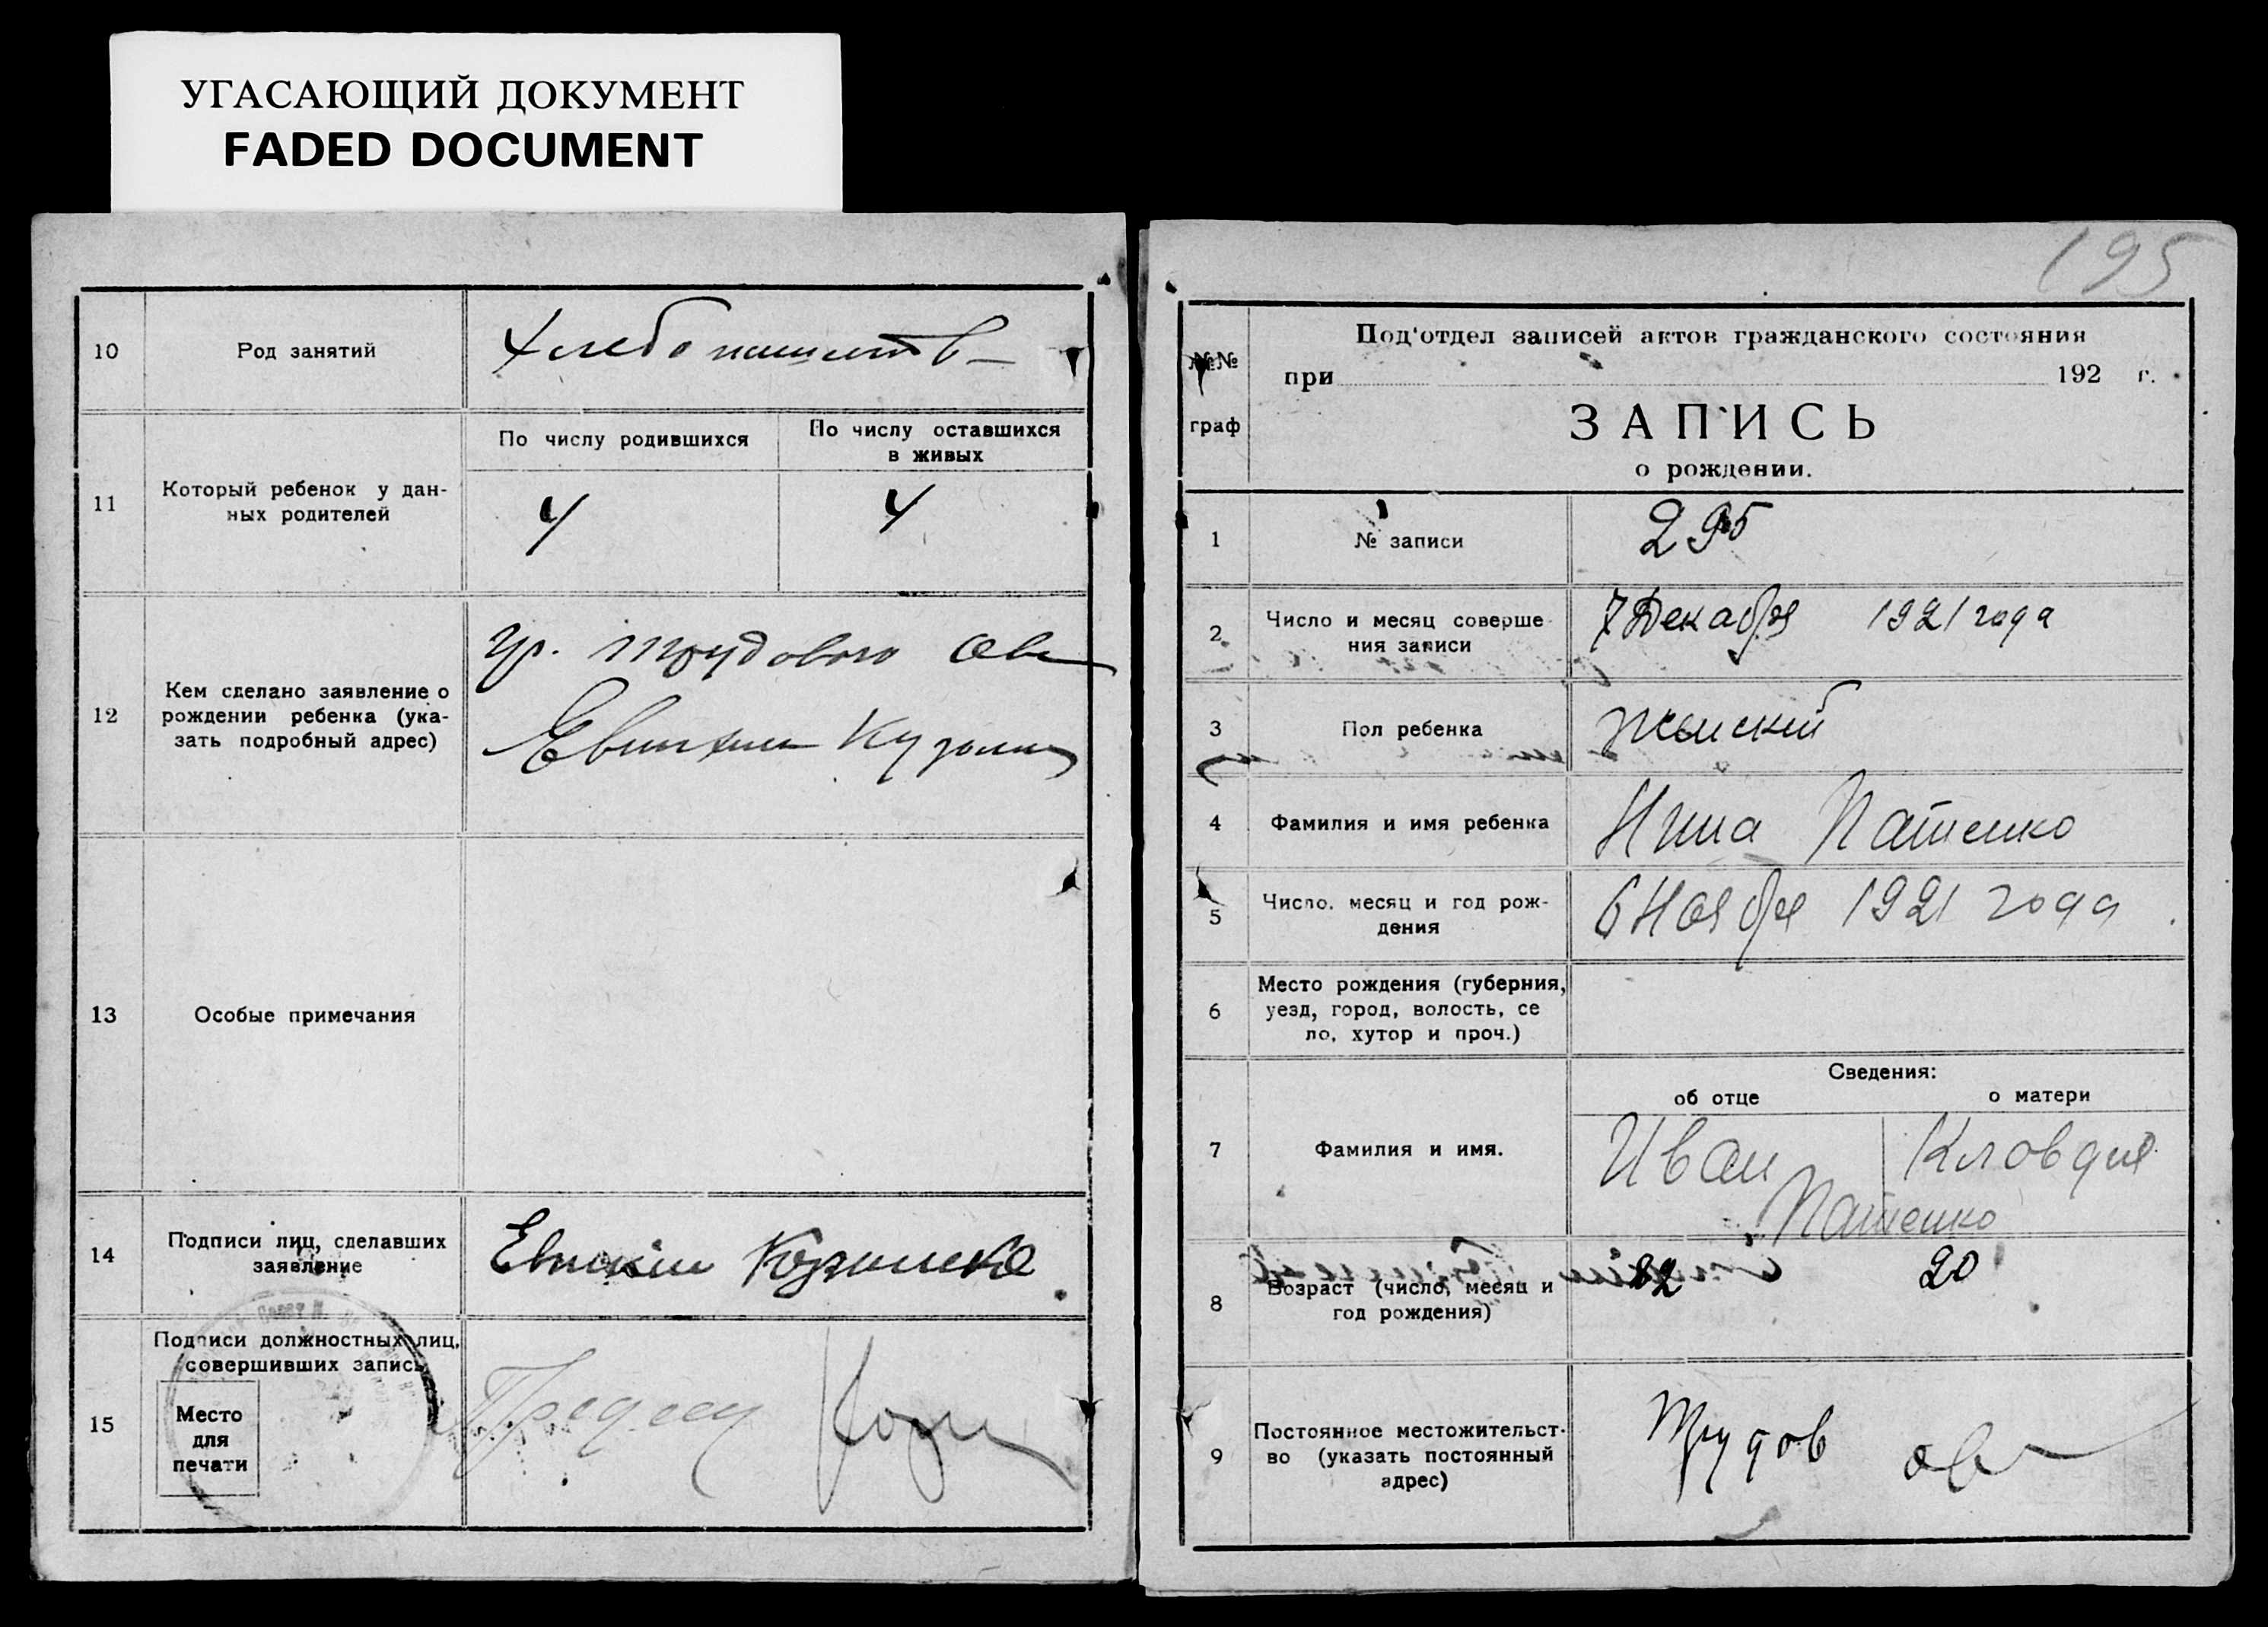 УГАСАЮЩИЙ ДОКУМЕНТ
FADED DOCUMENT
10
Род занятий
11
Который ребенок у дан-
ных родителей
По числу родившихся
По числу оставшихся
в живых
4
4
12
Кем сделано заявление о
рождении ребенка (ука-
зать подробный адрес)
гр. Трудового
13
Особые примечания
14
Подписи лиц, сделавших
заявление
15
Подписи должностных лиц,
совершивших запись
Место
для
печати
195
№№
граф
Под'отдел записей актов гражданского состояния
при 192 г.
ЗАПИСЬ
о рождении.
1
№ записи
295
2
Число и месяц соверше-
ния записи
7 Декабря 1921 года
3
Пол ребенка
4
Фамилия и имя ребенка
Нина Патенко
5
Число, месяц и год рож-
дения
6 Ноября 1921 года
6
Место рождения (губерния,
уезд, город, волость, се
ло, хутор и проч.)
Сведения:
об отце
о матери
7
Фамилия и имя.
Иван
Кловдия
Патенко
8
Возраст (число, месяц и
год рождения)
20
9
Постоянное местожительст-
во (указать постоянный
адрес)
Трудов